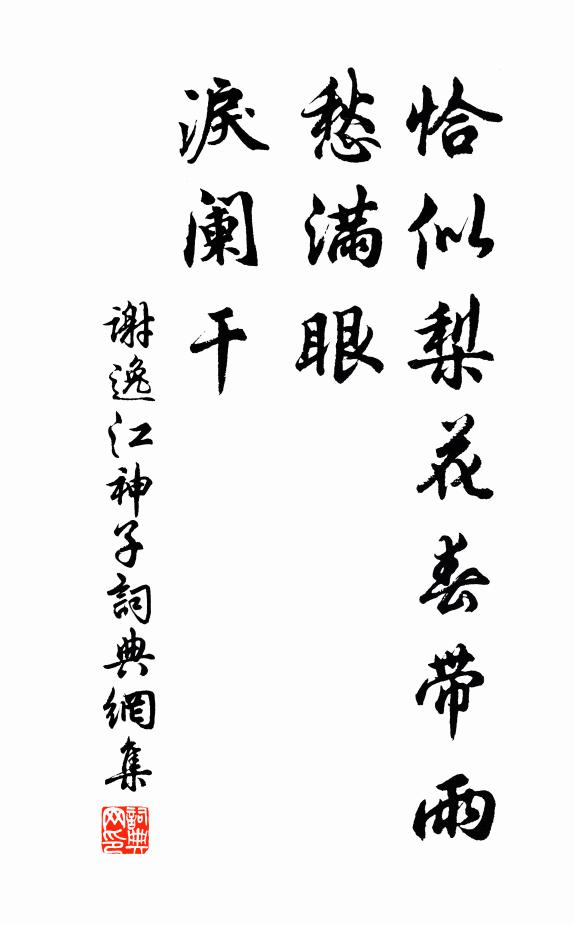 恰似梨花春带雨
愁满眼
淚阑干
谢逸江神子詞典網集
詞典网印